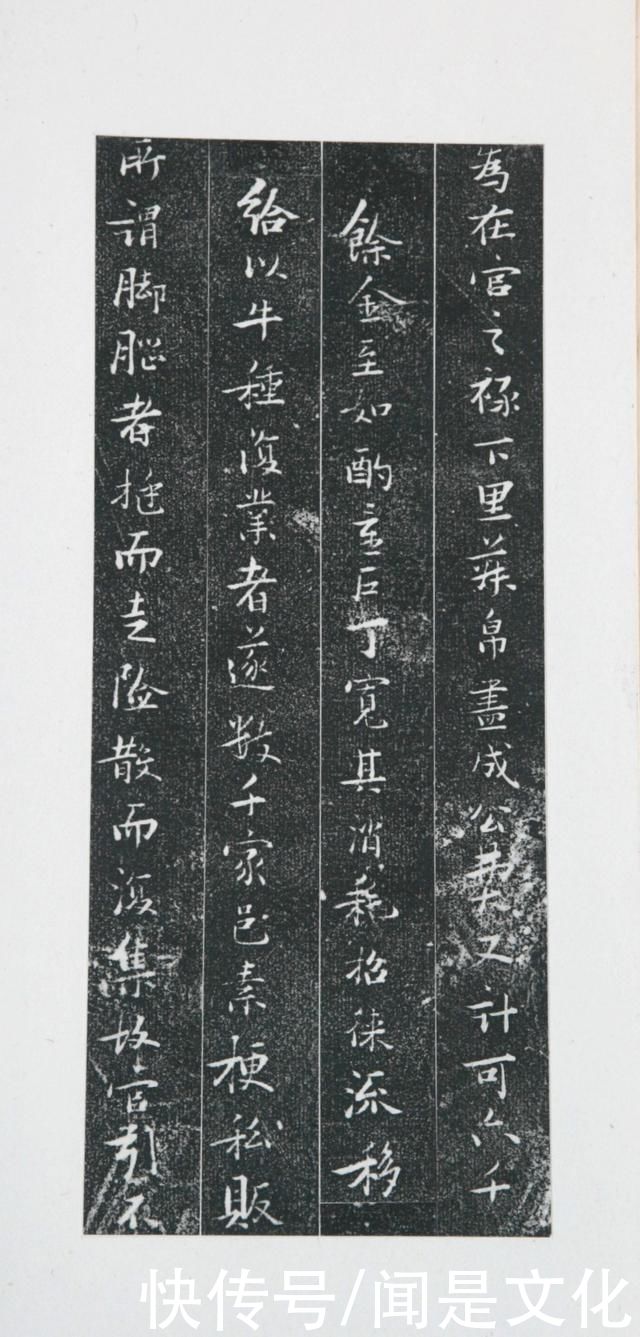 為在官之祿下里蔴帛盡成公費又計可六千
餘金至如酌主戶丁寬其消耗招徠流移
給以牛種復業者遂數千家邑素梗私販
所謂脚腦者拒而走險散而復集故官引不
快传号/闻是文化